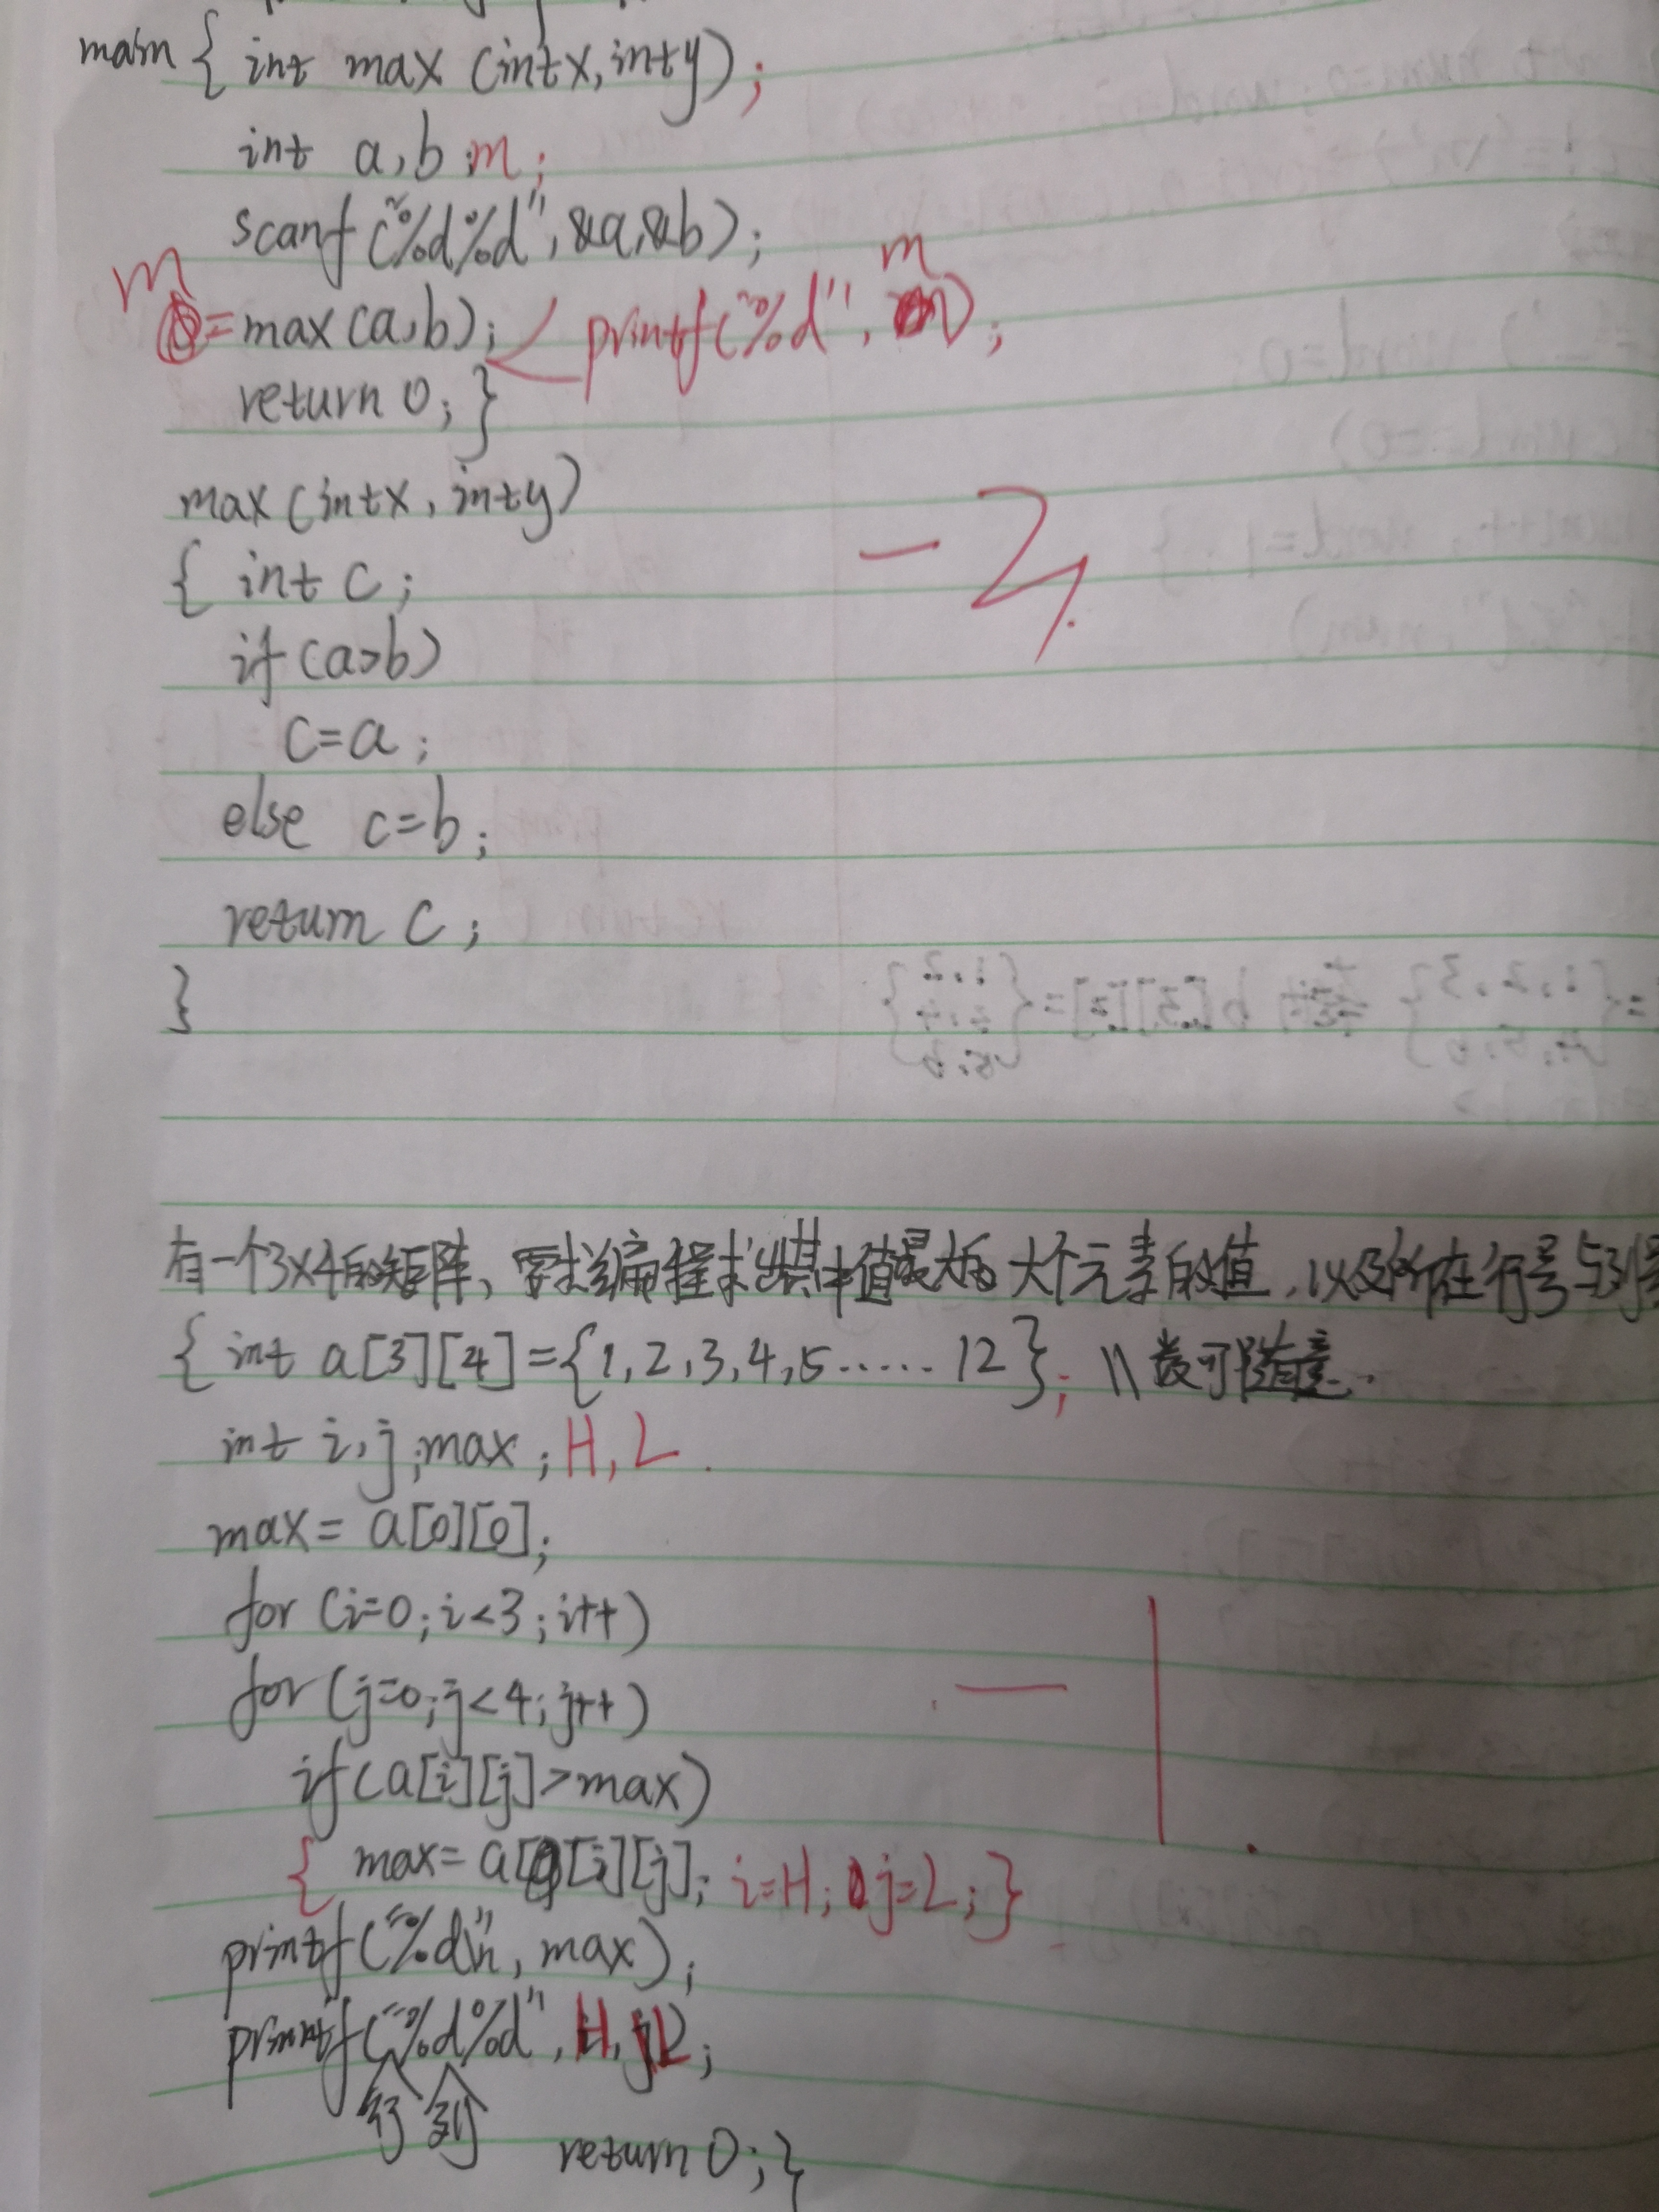 main { int max (int x, int y);
int a, b m;
scanf ("%d%d", &a, &b);
m
m
=max (a, b); printf("%d", );
return 0; }
max (int x, int y)
{ int c;
if (a>b)
-2
c=a;
else c=b;
return c;
}
有一个3×4的矩阵、要求编程求出其中值最大的 大个元素的值,以及所在行号与列号
{ int a[3][4]={1,2,3,4,5...... 12}; \\ 数可随意.
int i, j, max; H, L
max = a[0][0];
for (i=0; i<3; i++)
for (j=0; j<4; j++)
-1
if (a[i][j]>max)
{ max= a[i][j]; i=H; j=L; }
printf("%d\n", max);
printf("%d%d", H, L);
行 列
return 0; }